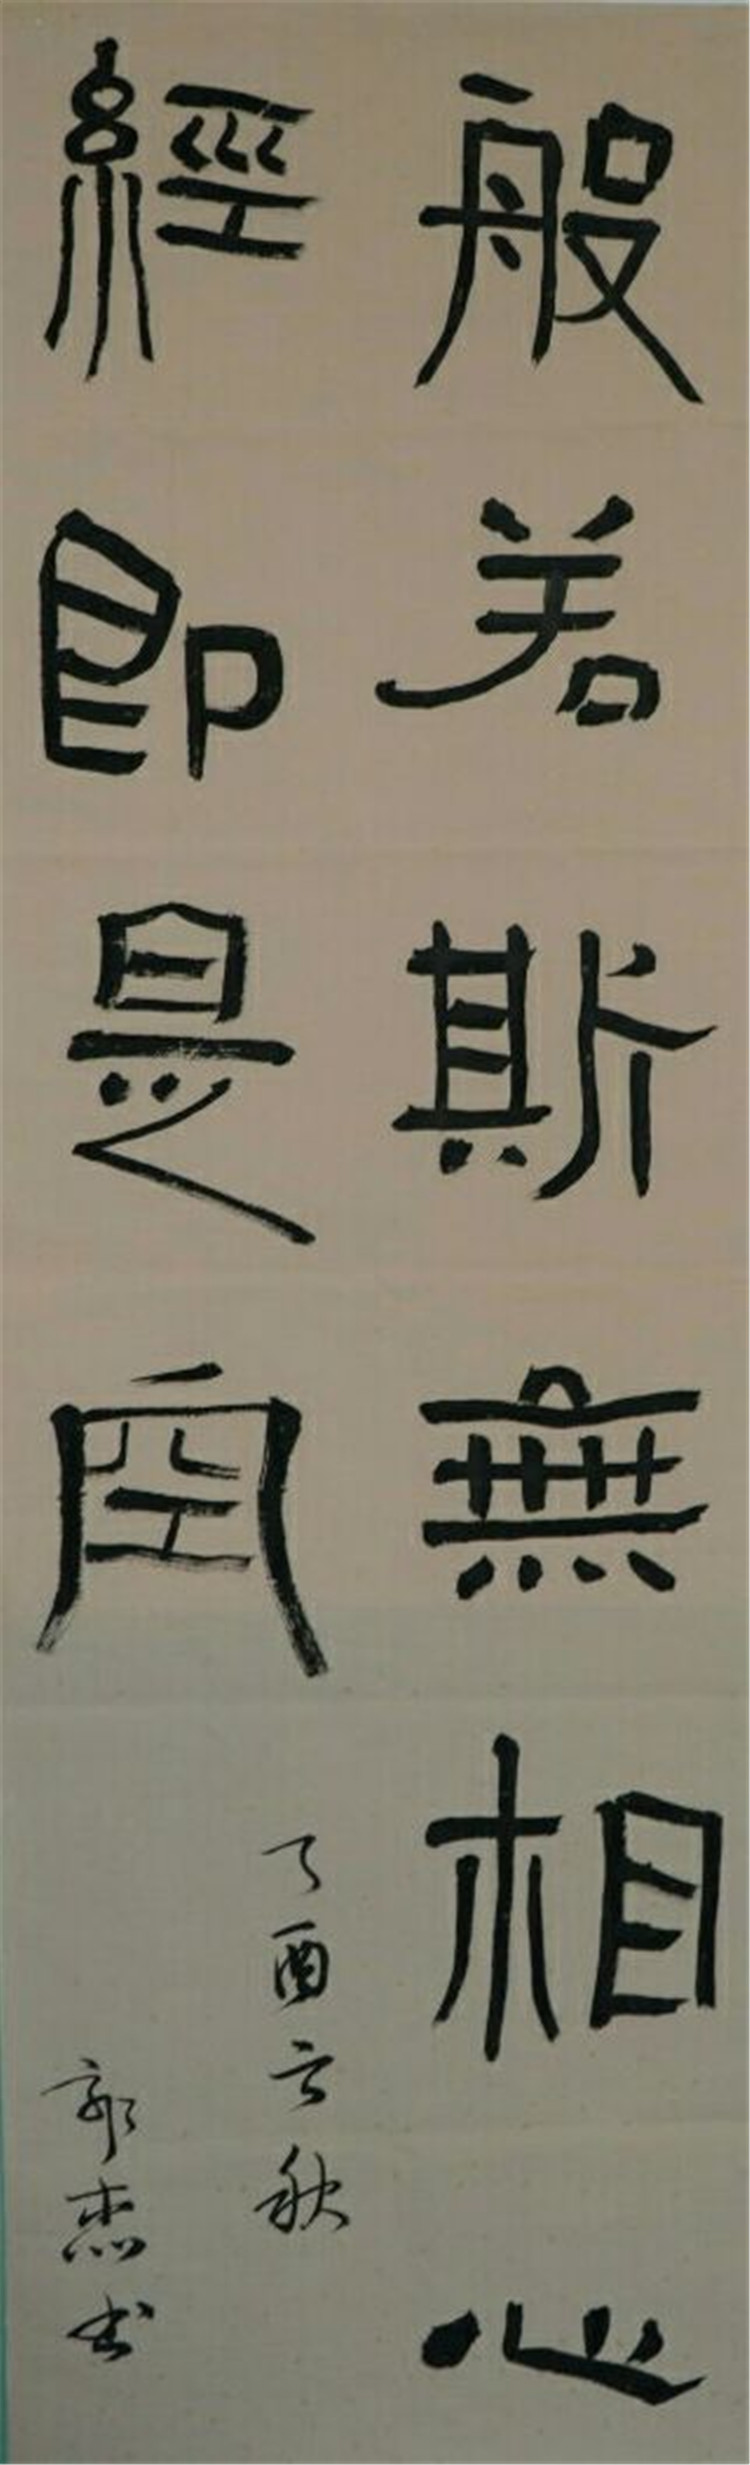 般若斯無相心
經即是空
丁酉秋
郭杰书